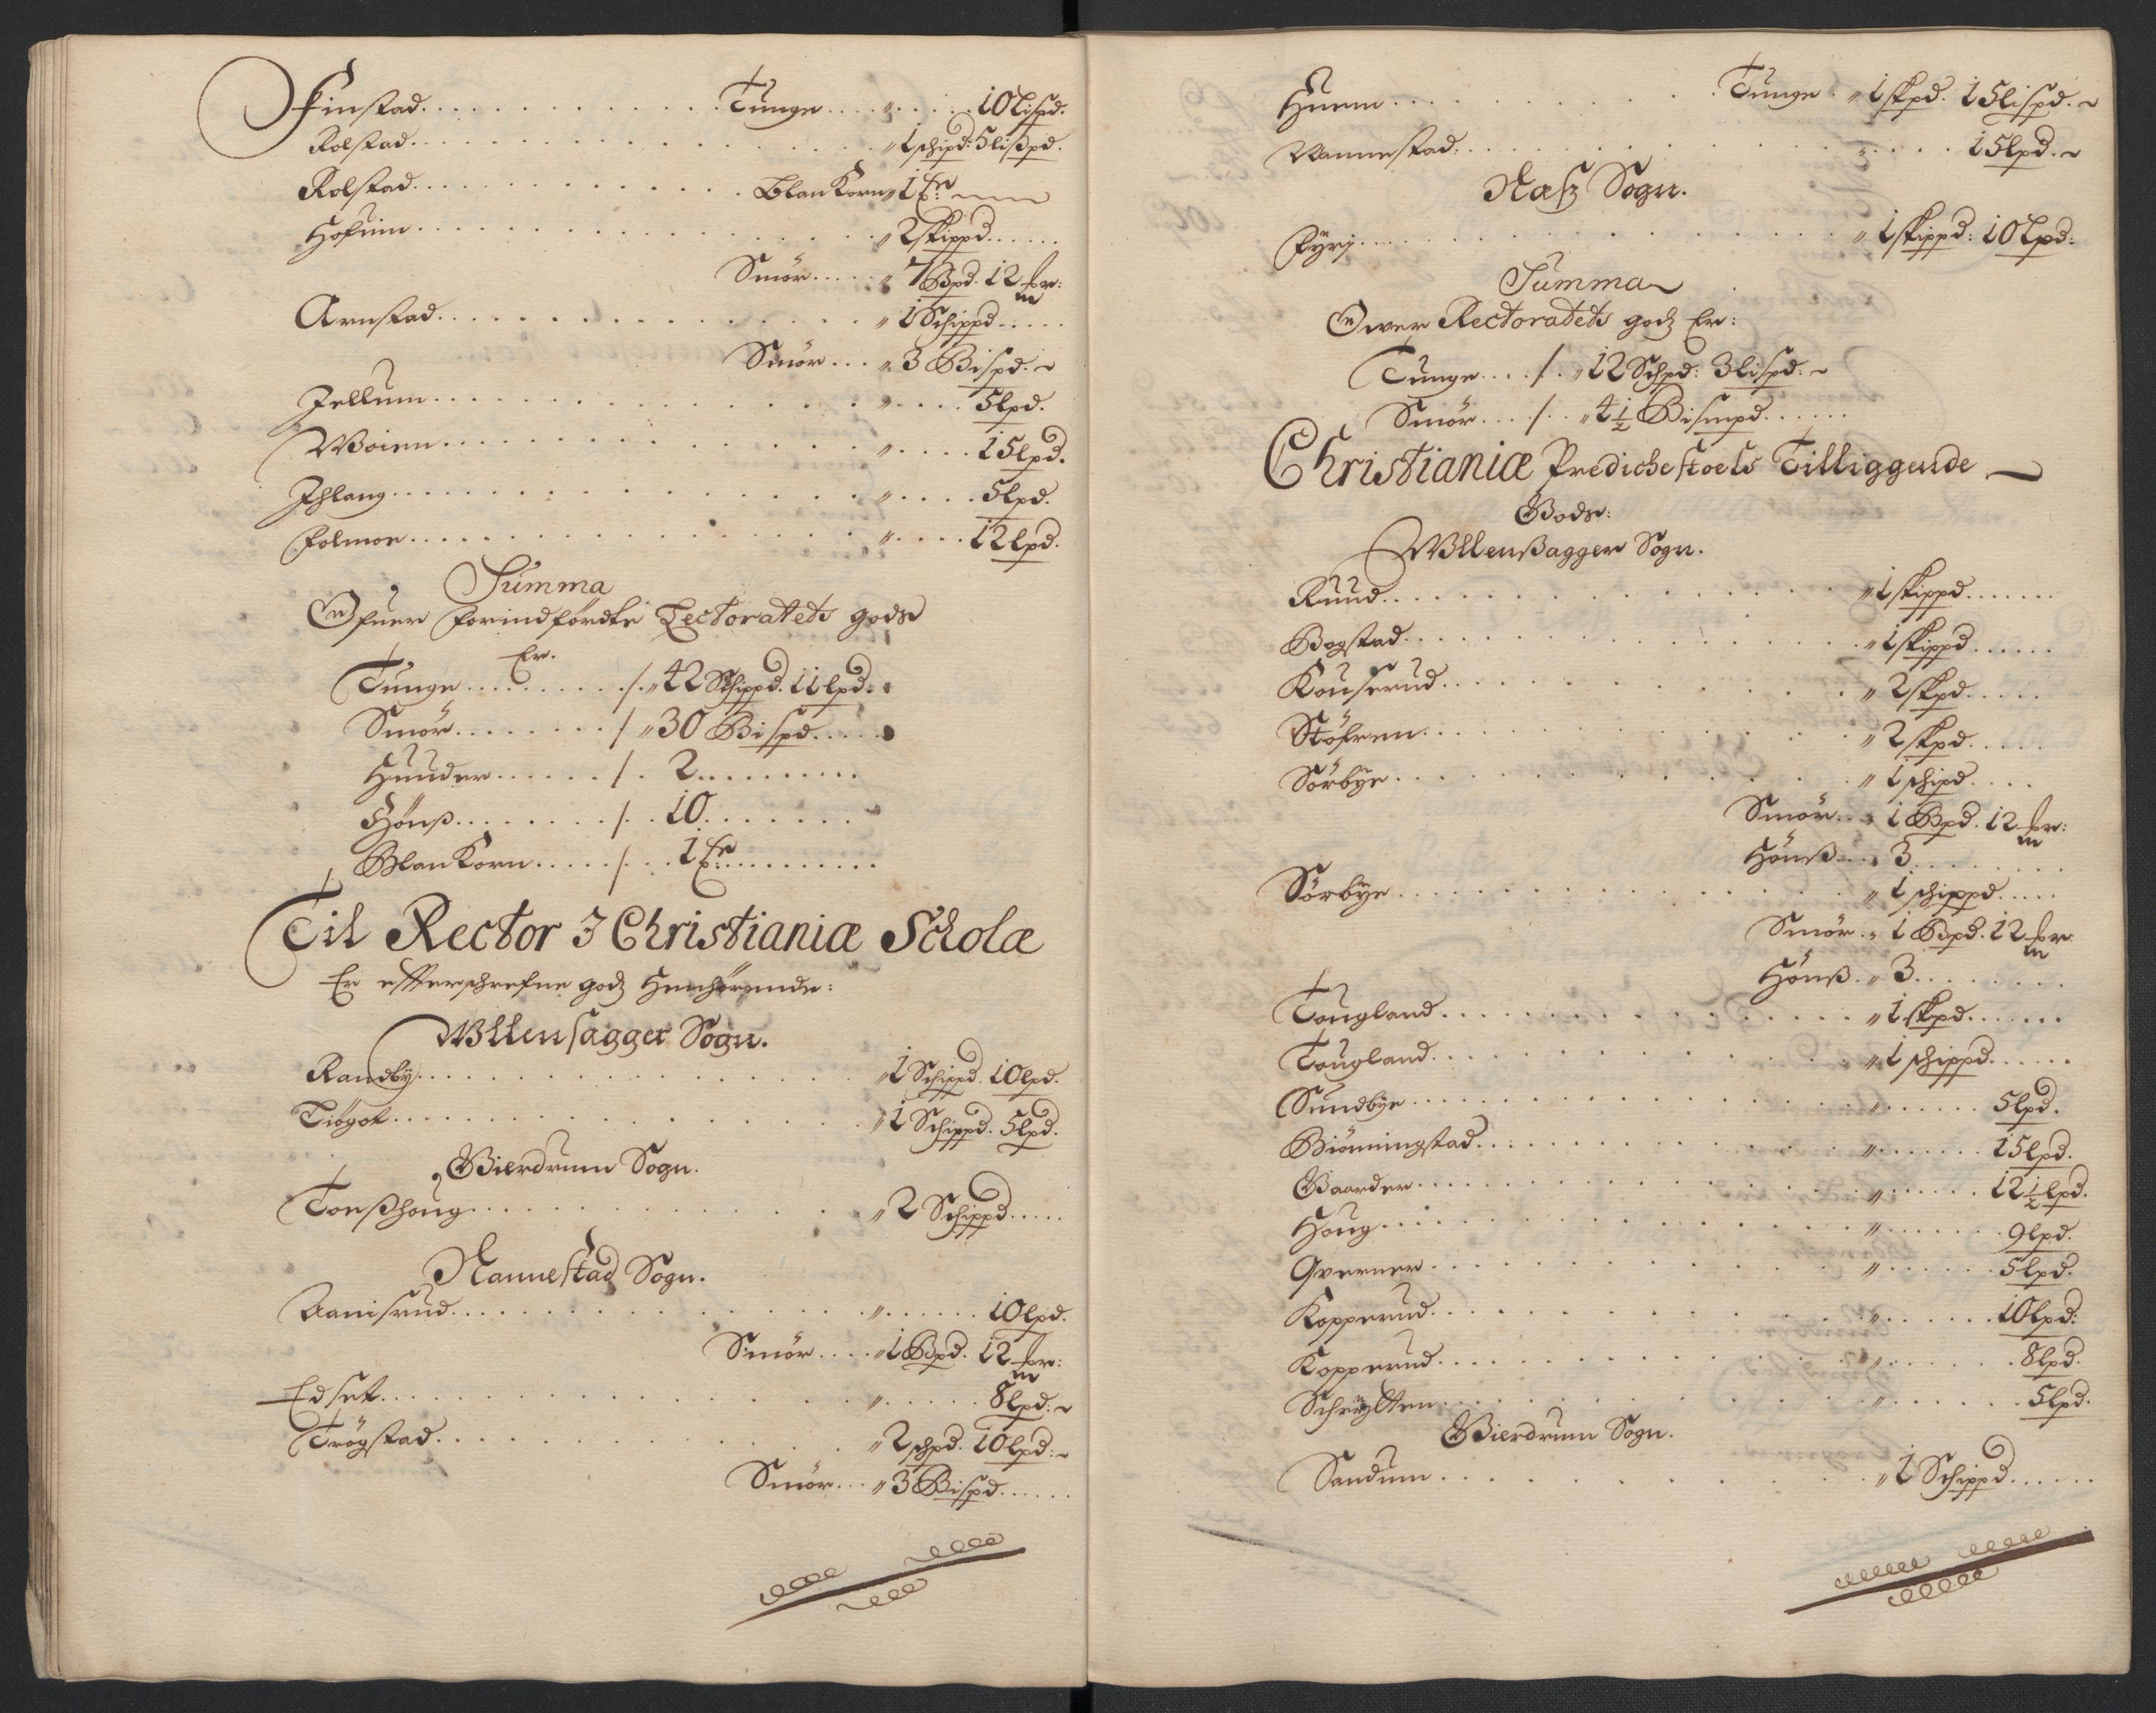 Finstad . . . . Tunge . . . . " . . . . 10 Lispd.
Rolstad . . . . " 1 schipd: 5 lißpd.
Rolstad . . . . BlanKorn " 1 Fr:
Hofuin . . . . " 2 skippd . . . .
Smör . . . . " 7 Bpd. 12 mr:
Arnstad . . . . " 1 Schippd . . . .
Smör . . . " 3 Bispd.
Jellum . . . . " . . . . 5 lpd.
Woien . . . . " . . . . 15 lpd.
Ihlang . . . . " . . . . 5 lpd.
Folmoe . . . . " . . . . 12 lpd.
Summa
Ofuer forindfördte Lectoratets gods
Er.
Tunge . . . . /. " 42 Schippd. 11 lpd.
Smör . . . . / " 30 Bispd . . . .
Huuder . . . . /. 2 . . . .
Hönß . . . . /. . 10 . . . .
BlanKorn . . . . /. . 1 Fr: . . . .
Til Rector I Christianiæ Scholæ
Er effterschrefne gods Henhörende:
Wllensagger Sogn.
Randby . . . . " 1 Schippd. 10 lpd.
Tiøgot . . . . " 1 Schippd. 5 lpd.
Gierdrum Sogn.
Torßhoug . . . . " 2 Schippd . . . .
Nannestad Sogn.
Aanisrud . . . . " . . . . 10 lpd.
Smör . . . . " 1 Bpd. 12 mr:
Edset . . . . " . . . . 8 lpd.
Trögstad . . . . " 2 schpd. 10 lpd:
Smör . . . " 3 Bispd . . . .
Huem . . . . Tunge . " 1 skpd. 15 lispd.
Nannestad . . . . " . . . . 15 lpd.
Næss Sogn.
Fyrj . . . . " 1 skippd: 10 Lpd:
Summa
Ower Rectoratets gods Er:
Tunge . . . . /. " 12 Schpd: 3 lispd.
Smör . . . . /. . " 4 1/2 Bismpd . . . .
Christianiæ Predichestoels Tilliggende
Gods:
Wllenßagger Sogn.
Ruud . . . . " 1 skippd . . . .
Bogstad . . . . " 1 skippd . . . .
Kouserud . . . . " 2 skpd . . . .
Stöfren . . . . " 2 skpd . . . .
Sörbye . . . . " 1 schipd . . . .
Smör . . " 1 Bpd. 12 mr:
Hönß . . . " 3 . . . .
Sörbye . . . . " 1 schippd . . . .
Smör . " 1 Bpd. 12 mr.
Hönß . " 3 . . . .
Tougland . . . . " 1 skpd . . . .
Tougland . . . . " 1 schippd . . . .
Sundbye . . . . " . . . . 5 lpd.
Biönningstad . . . . " . . . . 15 lpd.
Gaarder . . . . " . . . . 12 1/2 lpd.
Houg . . . . " . . . . 9 lpd.
Qverner . . . . " . . . . 5 lpd.
Kopperud . . . . " . . . . 10 lpd:
Kopperud . . . . " . . . . 8 lpd.
Schrytten . . . . " . . . . 5 lpd.
Gierdrum Sogn.
Sandum . . . . " 1 Schippd . . . .